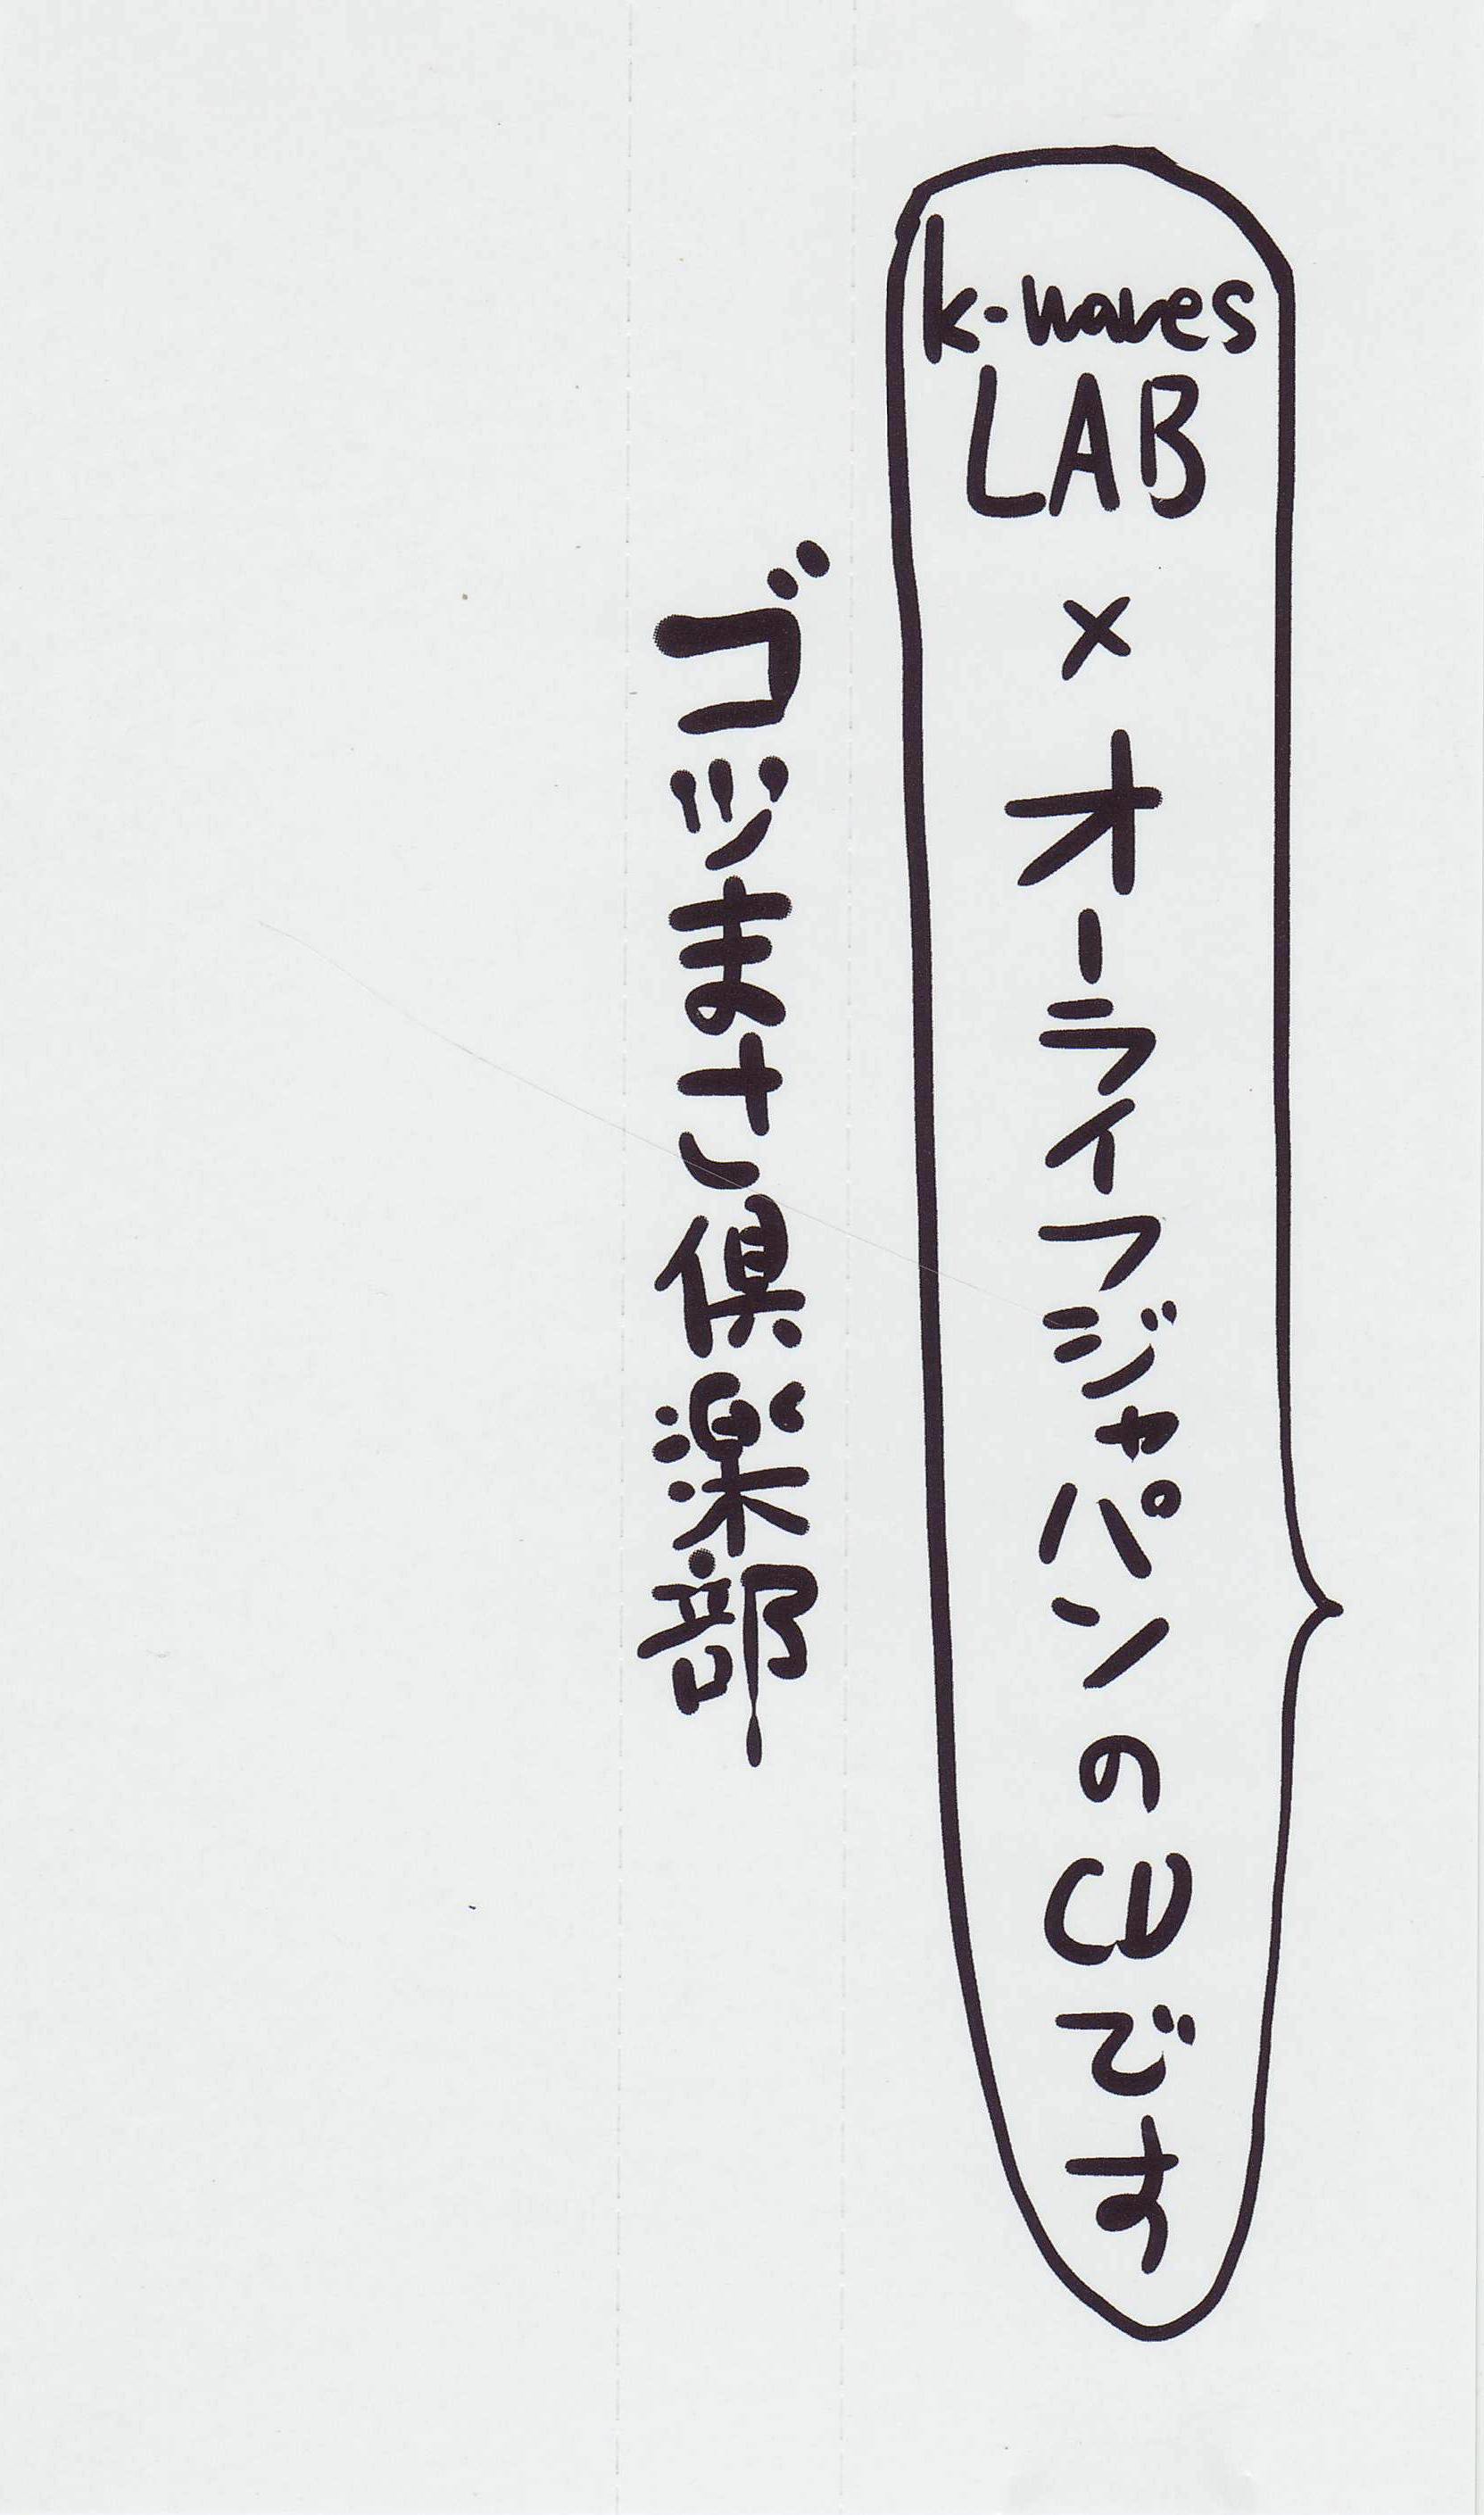 k-waves LAB × オーライフジャパンのCDです
ゴッツまさ倶楽部